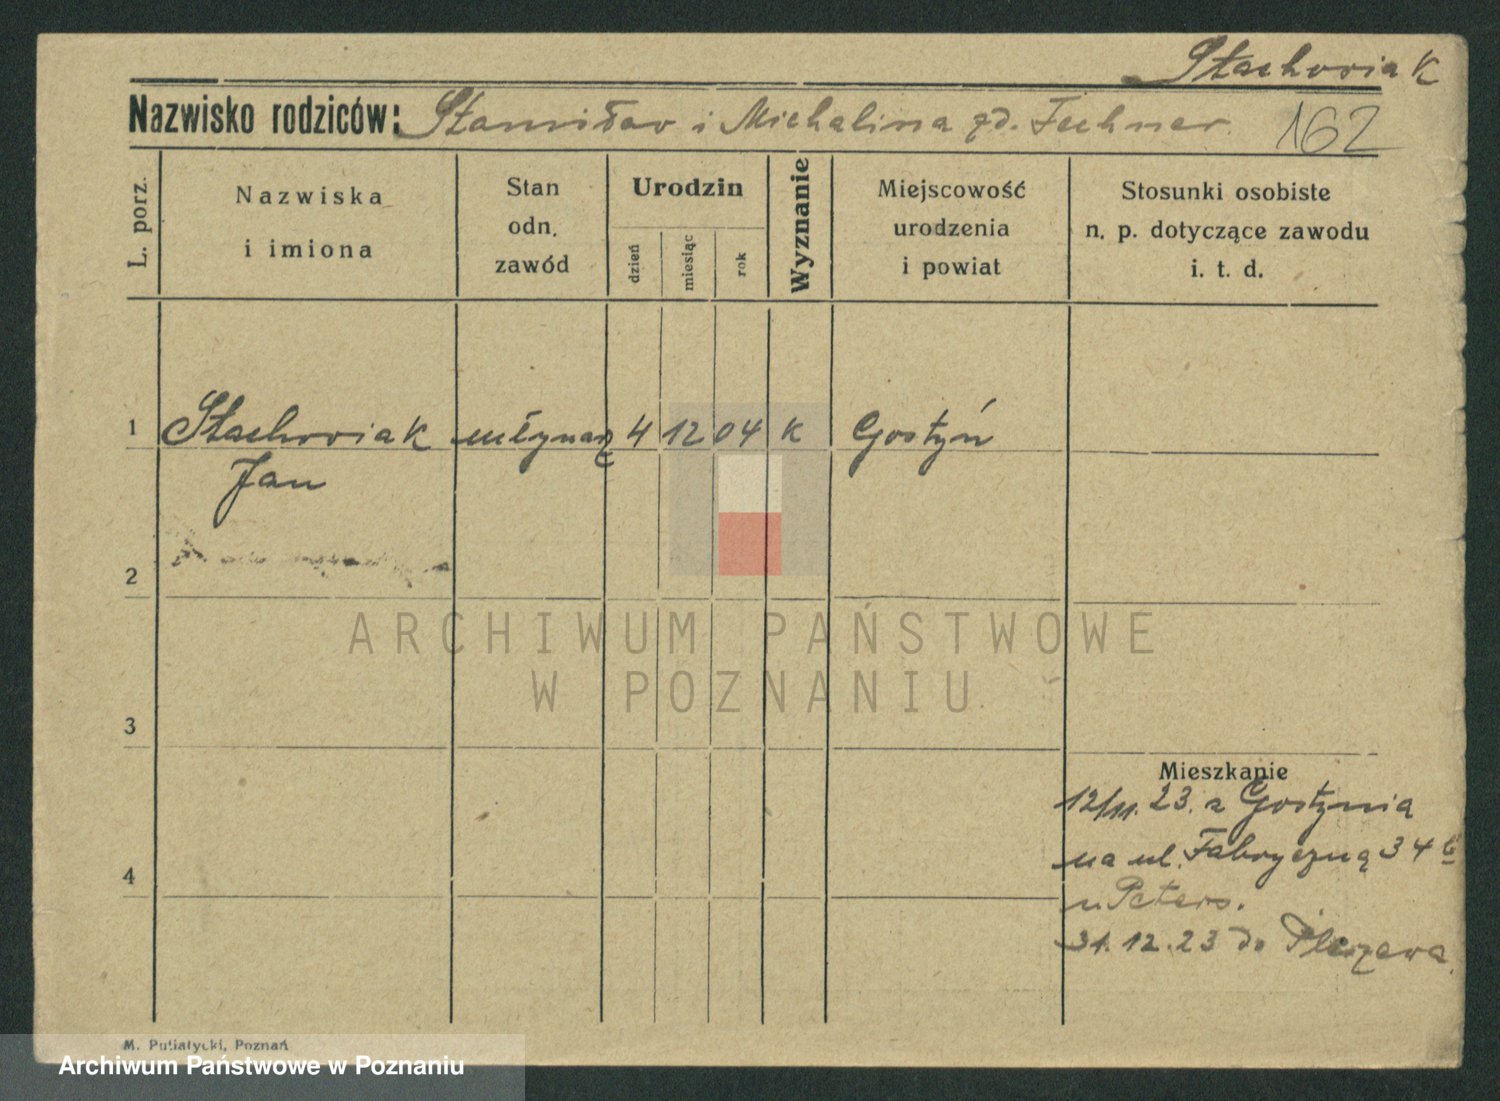 Stachowiak
Nazwisko rodziców: Stanisław i Michalina zd. Fechner. 162
L. porz.
Nazwiska
i imiona
Stan
odn.
zawód
Urodzin
dzień
miesiąc
rok
Wyznanie
Miejscowość
urodzenia
i powiat
Stosunki osobiste
n. p. dotyczące zawodu
i. t. d.
1 Stachowiak młynarz 4 12 04 k Gostyń
Jan
2
ARCHIWUM PAŃSTWOWE
W POZNANIU
3
Mieszkanie
12/11. 23. z Gostynia
na ul. Fabryczną 34
4
u Peters.
31.12.23 do Pleszewa.
M. Putiatycki, Poznań
Archiwum Państwowe w Poznaniu